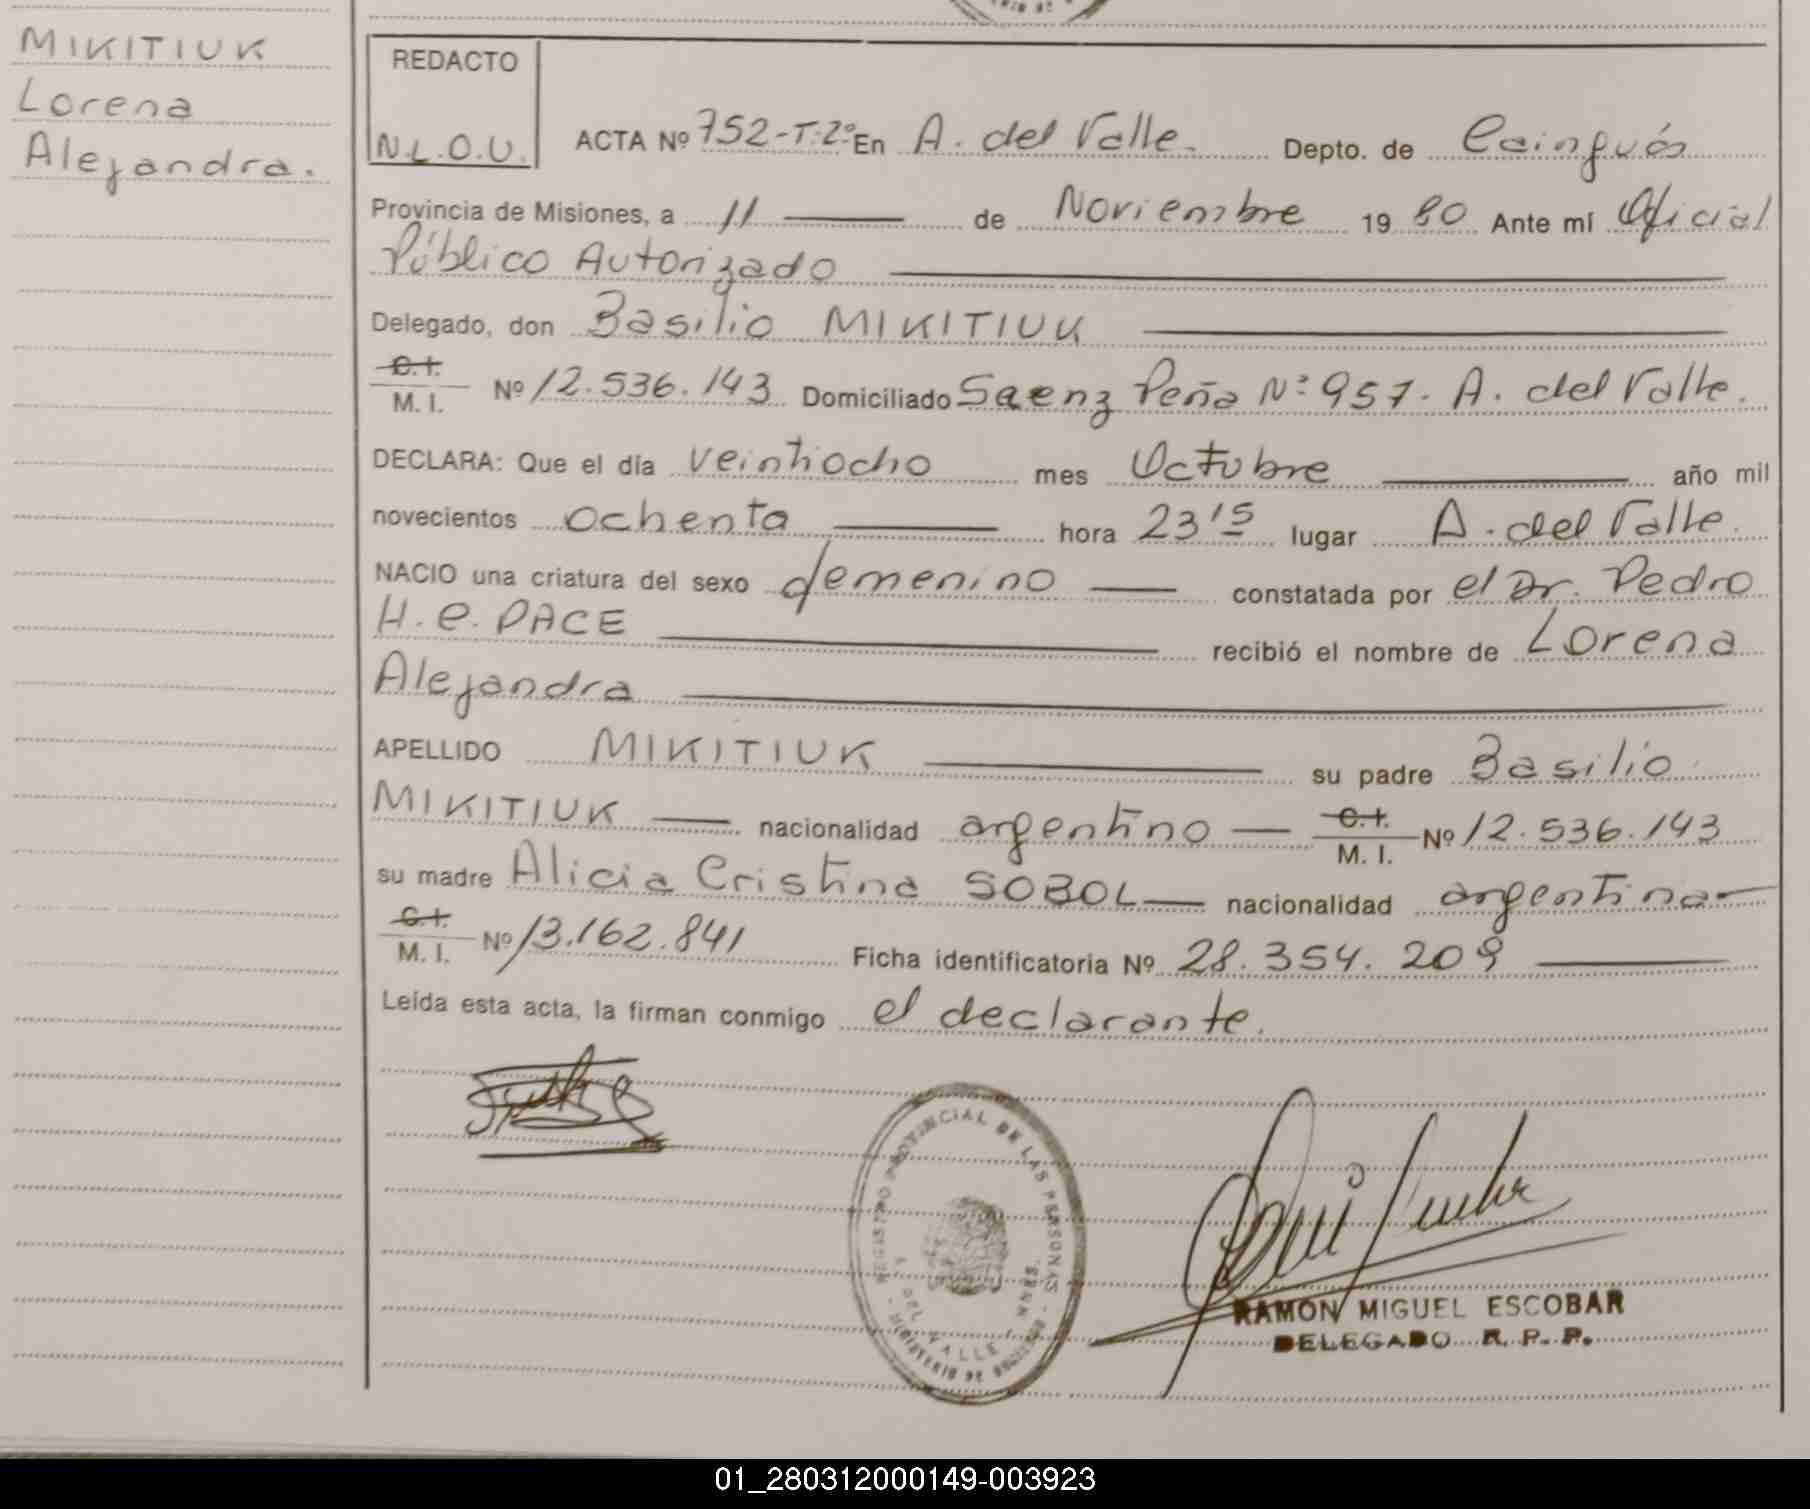 MIKITIUK
Lorena
Alejandra.
REDACTO
N.L.O.U.
ACTA Nº 752-T:2º En A. del Valle. Depto. de Caінguás
Provincia de Misiones, a 11 de Noviembre 19 80 Ante mí Oficial
Público Autorizado
Delegado, don Basilio MIKITIUK
C.I.
M. I. Nº 12.536.143 Domiciliado Saenz Peña Nº 957. A. del Valle.
DECLARA: Que el día veintiocho mes Octubre año mil
novecientos ochenta hora 23 15 lugar A. del Valle.
NACIO una criatura del sexo femenino constatada por el Dr. Pedro
H. C. PACE recibió el nombre de Lorena
Alejandra
APELLIDO MIKITIUK su padre Basilio
MIKITIUK nacionalidad argentino C.I.
M. I. Nº 12.536.143
su madre Alicia Cristina SOBOL nacionalidad argentina
C.I.
M. I. Nº 13.162.841 Ficha identificatoria Nº 28.354.209
Leída esta acta, la firman conmigo el declarante.
REGISTRO PROVINCIAL DE LAS PERSONAS
A. DEL VALLE
MINISTERIO DE
RAMON MIGUEL ESCOBAR
DELEGADO R. P. P.
01_280312000149-003923